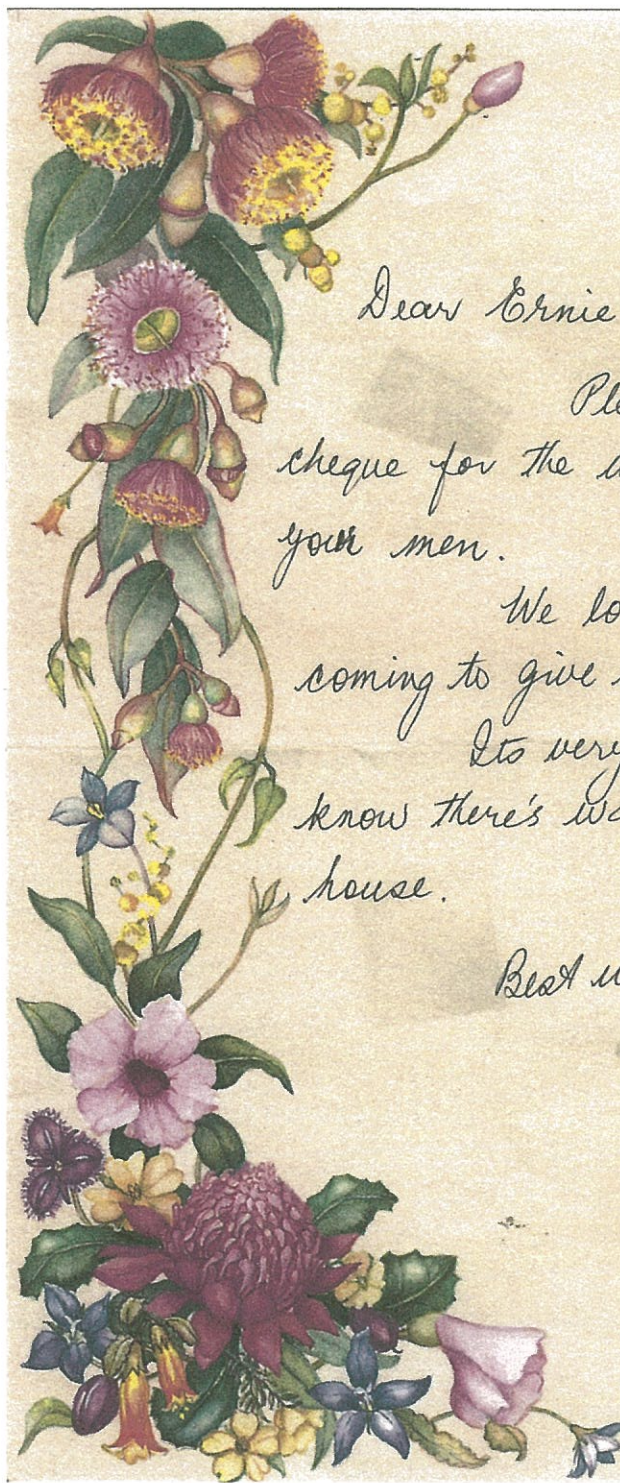 Dear Ernie
Ple
cheque for the w
your men.
We lo
coming to give
Its very
know there's wa
house.
Best w